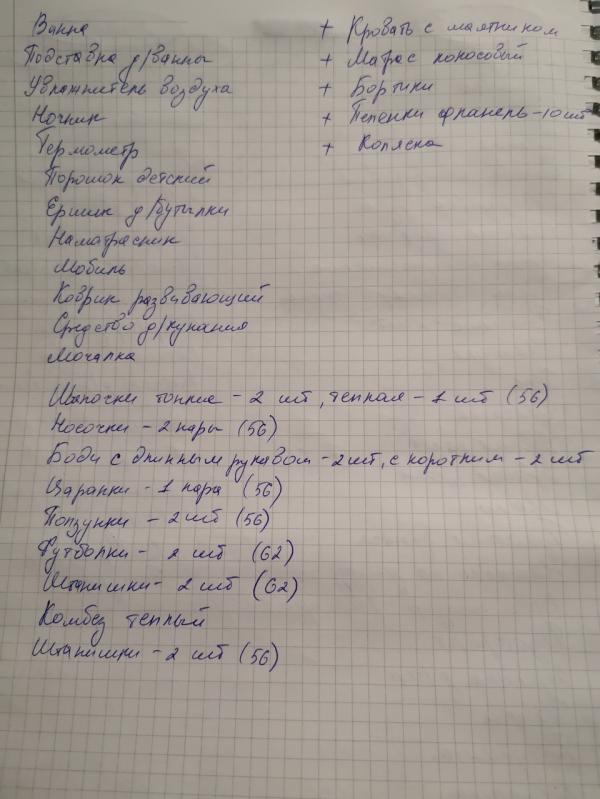 Ванна
Подставка д/ванны
Увлажнитель воздуха
Ночник
Термометр
Порошок детский
Ершик д/бутылки
Наматрасник
Мобиль
Коврик развивающий
Средство д/купания
Мочалка
+ Кровать с маятником
+ Матрас кокосовый
+ Бортики
+ Пеленки фланель-10шт
+ Коляска
Шапочки тонкие - 2 шт, теплая - 1 шт (56)
Носочки - 2 пары (56)
Боди с длинным рукавом - 2шт, с коротким - 2 шт
Царапки - 1 пара (56)
Ползунки - 2 шт (56)
Футболки - 2 шт (62)
Штанишки - 2 шт (62)
Комбез теплый
Штанишки - 2 шт (56)